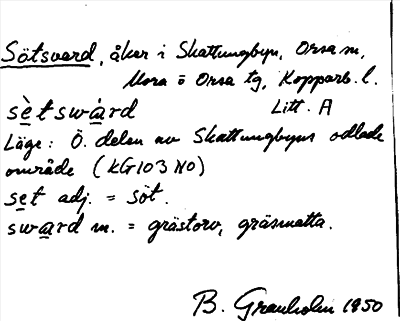 Sötsvard, åker i Skattungbyn, Orsa sn,
Mora o Orsa tg, Kopparb. l.
sètswàrd Litt. A
Läge: Ö. delen av Skattungbyns odlade
område (KG103 NO)
set adj. = söt.
sward m. = grästorv, gräsmatta.
B. Granholm 1950